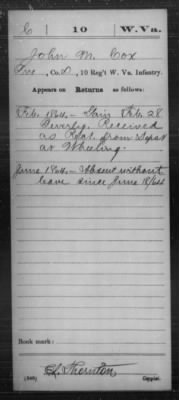 C | 10 | W. Va.
John M. Cox
Pvt, Co. D, 10 Reg't W. Va. Infantry.
Appears on Returns as follows:
Feb. 1864.- Gain Feb. 28
Beverly. Received
as Rect. from Depot
at Wheeling.
June 1864.- Absent without
leave since June 18/64
Book mark:
Thornton
(546) Copyist.